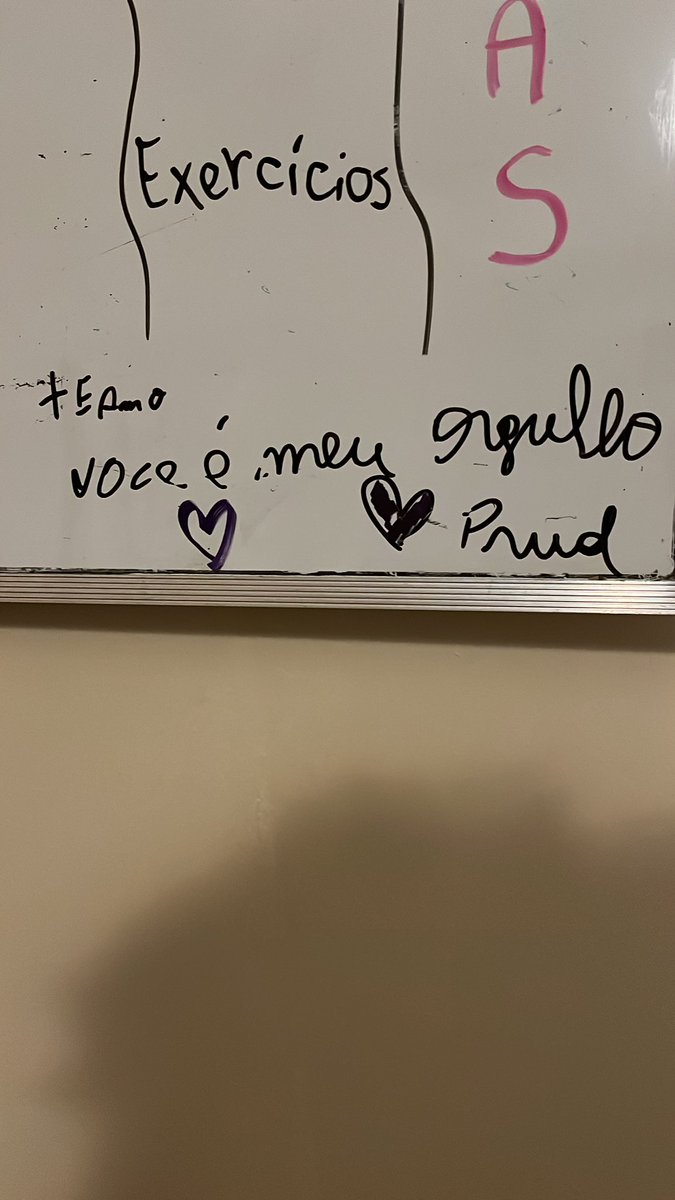 A
Exercícios
S
tE Amo
voce é meu orgullo
Prud